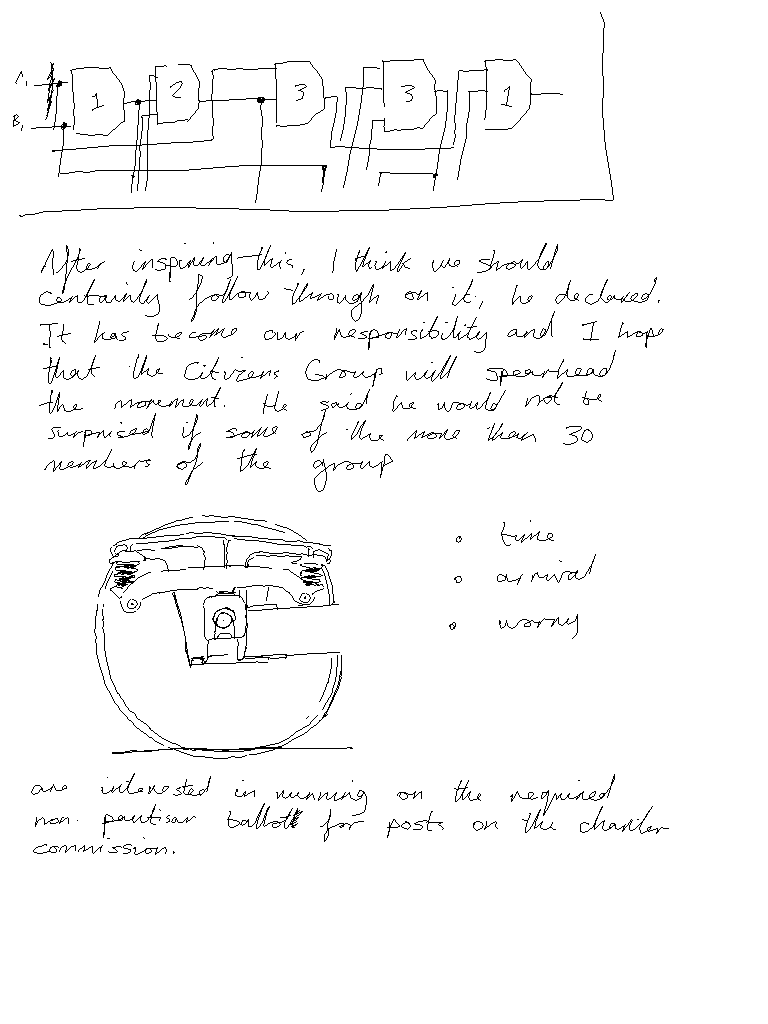 A₁
B₁
1 2 3 3 1
After inspiring this, I think we should
certainly follow through on it, he declared.
It has become our responsibility and I hope
that the Citizens Group will spearhead
the movement. He said he would not be
surprised if some of the more than 30
members of the group
• time
• arrival
• worry
are interested in running on the required
non. partisan ballot for posts on the charter
commission.